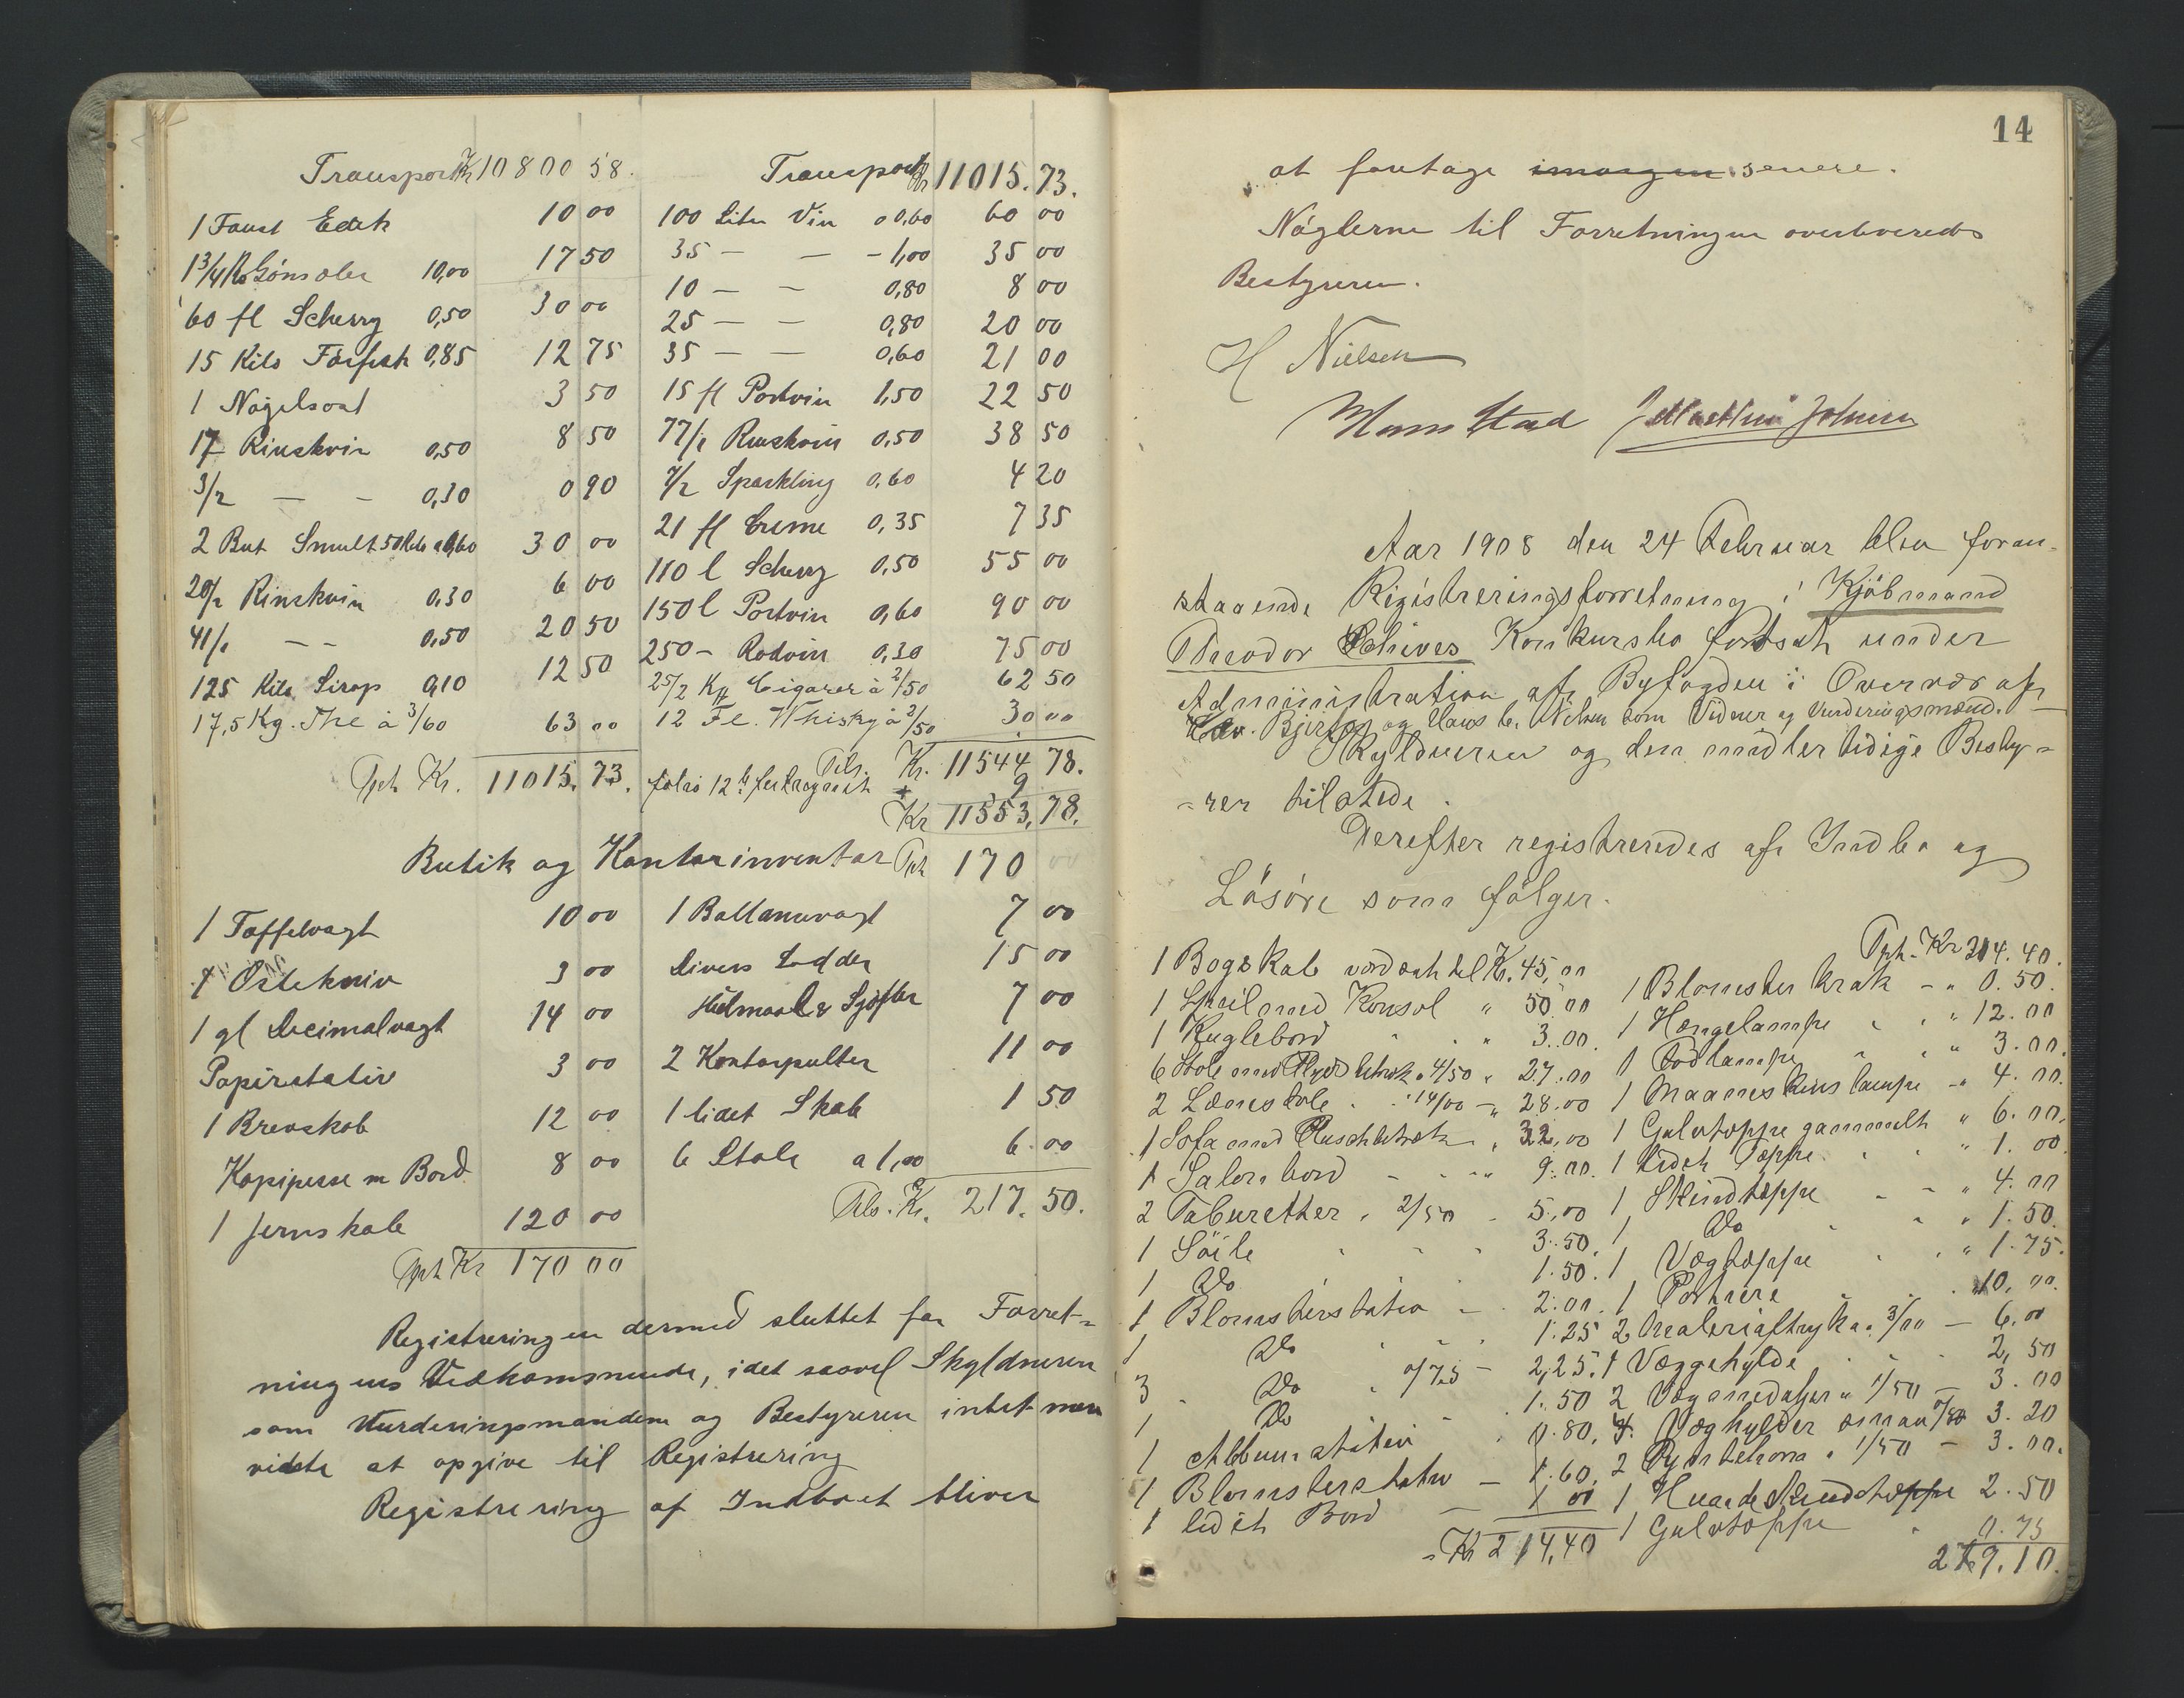 Transport Kr 10800 58.
1 Faust Edik 10 00
1 3/4 10,00 17 50
60 fl Scherry 0,50 30 00
15 Kilo 0,85 12 75
1 3 50
17 Rinskvin 0,50 8 50
3/2 — - 0,30 0 90
2 But Smult 50 Kilo a 0,60 30 00
20/2 Rinskvin 0,30 6 00
41/1 - - 0,50 20 50
125 Kilo Sirop 0,10 12 50
17,5 Kg. The à 3/60 63 00
Tprt Kr. 11015. 73.
Transport Kr 11015. 73.
100 Liter Vin a 0,60 60 00
35 — — - 1,00 35 00
10 — - 0,80 8 00
25 — - 0,80 20 00
35 — — 0,60 21 00
15 fl Portvin 1,50 22 50
77/1 Rinskvin 0,50 38 50
7/2 Sparkling 0,60 4 20
21 fl Creme 0,35 7 35
110 l Scherry 0,50 55 00
150 l Portvin 0,60 90 00
250 - Rødvin 0,30 75 00
25/2 Cigarer à 2/50 62 50
12 Fl. Whisky à 2/50 30 00
Tils. Kr. 11544 78.
folio 12 + 9
Kr 11553,78.
Butik og Kontorinventar Tprt 170 00
1 Taffelvægt 10 00
1 Ostekniv 3 00
1 gl Decimalvægt 14 00
Papirstativ 3 00
1 Brevskab 12 00
Kopipresse m Bord 8 00
1 Jernskab 120 00
Tprt Kr 170 00
1 Ballancevægt 7 00
Divers Lodder 15 00
Hulmaal & 7 00
2 Kontorpulter 11 00
1 lidet Skab 1 50
6 Stole a 1,00 6.00
Tils. Kr. 217. 50.
Registreringen dermed sluttet for Forret-
ningens Vedkommende, idet saavel Skyldneren
som Vurderingsmændene og Bestyreren intet mer
vidste at opgive til Registrering
Registrering af Indboet bliver
14
at foretage imorgen senere.
Nøglerne til Forretningen overleveredes
Bestyreren.
H Nielsen
Johnsen
Aar 1908 den 24 Februar blev foran-
staaende Registreringsforretning i Kjøbmand
Theodor Schives Konkursbo fortsat under
Administration af Byfogden i Overvær af
og Hans Nielsen som Vidner og Vurderingsmænd.
Skyldneren og den midlertidige Besty-
-rer tilstede.
Derefter registreredes af Indbo og
Løsøre som følger.
1 Bogskab værdsat til Kr. 45,00
1 Speil med Konsol " 50.00
1 Kuglebord " 3.00.
6 Stole med betræk a 4/50 27.00
2 Lænestole 14/00 - 28.00
1 Sofa med Pluschbetræk 32,00
1 Salonbord - 9.00.
2 Taburetter 2/50 - 5,00
1 Söile 3.50.
1 Do 1.50.
1 Blomsterstativ - 2.00.
1 Do 1.25
3 Do 0/75 - 2,25.
1 Do 1.50
1 Albumstativ 0.80,
1 Blomsterstativ — 1.60,
1 lidet Bord — 1 00
Kr 214,40
Tprt. Kr 214.40.
1 Blomsterkrak - " 0.50.
1 Hængelampe " 12.00
1 " 3.00.
1 Maaneskinslampe - " 4.00.
1 Gulvtæppe gammelt " 6.00.
1 lidet Tæppe " 1.00.
1 Skindtæppe - - " 4.00
1 Do " 1.50.
1 Vægtæppe " 1.75.
1 Portiere 10,00.
2 Maleriaftryk a 3/00 — 6.00
1 Væggehylde 2,50
2 Vægmedaljer a 1/50 — 3.00
4 Væghylder 3.20
2 a 1/50 — 3.00.
1 2.50
1 Gulvtæppe 0.75
279.10.